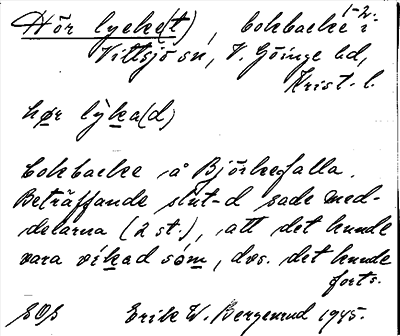 1-2.
Hör lycke(t), bokbacke i
Vittsjö sn, V. Göinge hd,
Krist. l.
hør lỳka(d)
bokbacke å Björkefalla.
Beträffande slut-d sade med-
delarna (2 st.), att det kunde
vara víkad sóm, dvs. det kunde
forts.
Erik W. Bergenrud 1945.